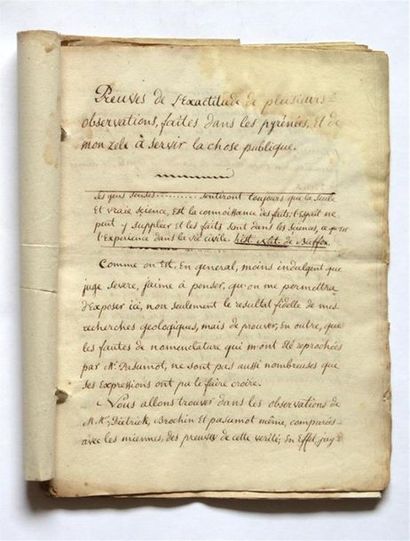 Preuves de l'Exactitude de plusieurs
observations, faites dans les pyrénées, Et de
mon zele à servir la chose publique.
les gens sensés ........ sentiront toujours que la seule
Et vraie science, Est la connoissance des faits; l'Esprit ne
peut y suppléer Et les faits sont dans les sciences, ce qu'est
l'Expérience dans la vie civile. hist. nat. de Buffon.
Comme on Est, En general, moins indulgent que
juge severe, j'aime à penser, qu'on me permettra
d'Exposer ici, non seulement le resultat fidelle de mes
recherches geologiques, mais de prouver, En outre, que
les fautes de nomenclature qui m'ont été reprochées
par Mr. Pasumot, ne sont pas aussi nombreuses que
ses Expressions ont pu le faire croire.
Nous allons trouver dans les observations de
M.Mrs. Dietrick, Brochin Et pasumot même, comparées
avec les miennes, des preuves de cette verité; En Effet,